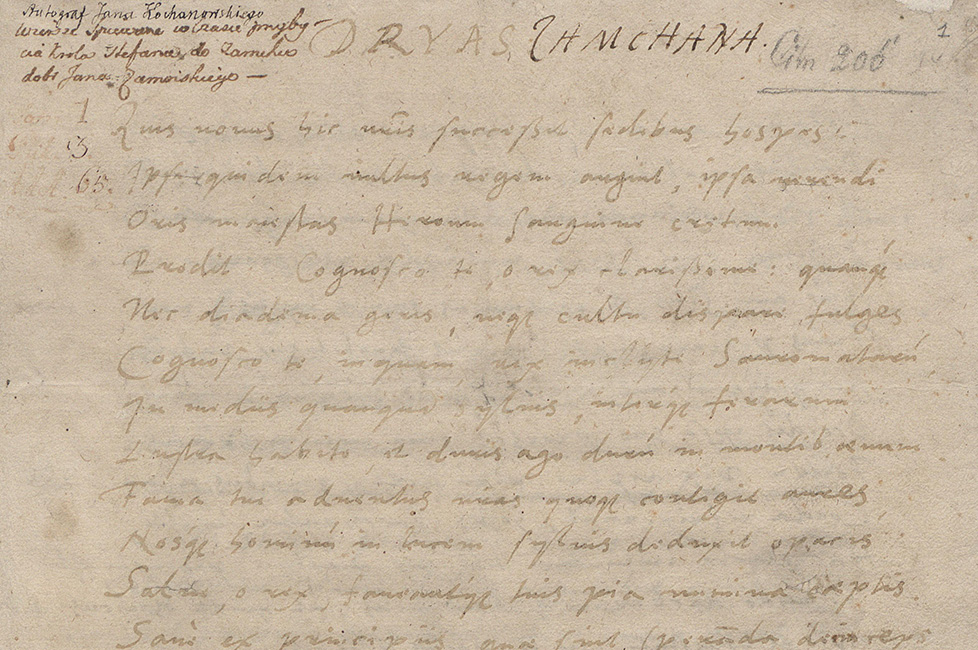 Autograf Jana Kochanowskiego
wiersz śpiewane w czasie przyby
cia króla Stefana do Zamchu
dóbr Jana Zamoiskiego —
DRYAS ZAMCHANA.
Cim 206
1
1
3
65.
Quis novus hic nr̃is successit sedibus hospes?
Ipse quidem vultus regem arguit, ipsa verendi
Oris maiestas Heroum sanguine cretum
Prodit. Cognosco te, o rex clarissime: quanq̃
Nec diadema geris, neq; cultu dispare fulges
Cognosco te, inquam, rex inclyte Sauromatarũ,
In mediis quanquã sylvis, interq; ferarum
Lustra habito, et duris ago durũ in montib' aevum
Fama tui adventus nr̃as quoq; contigit aures,
Nosq; hominũ in lucem sylvis deduxit opacis:
Salve, o rex, faveantq; tuis pia numina cæptis
Sane ex principiis quæ sint speranda deinceps